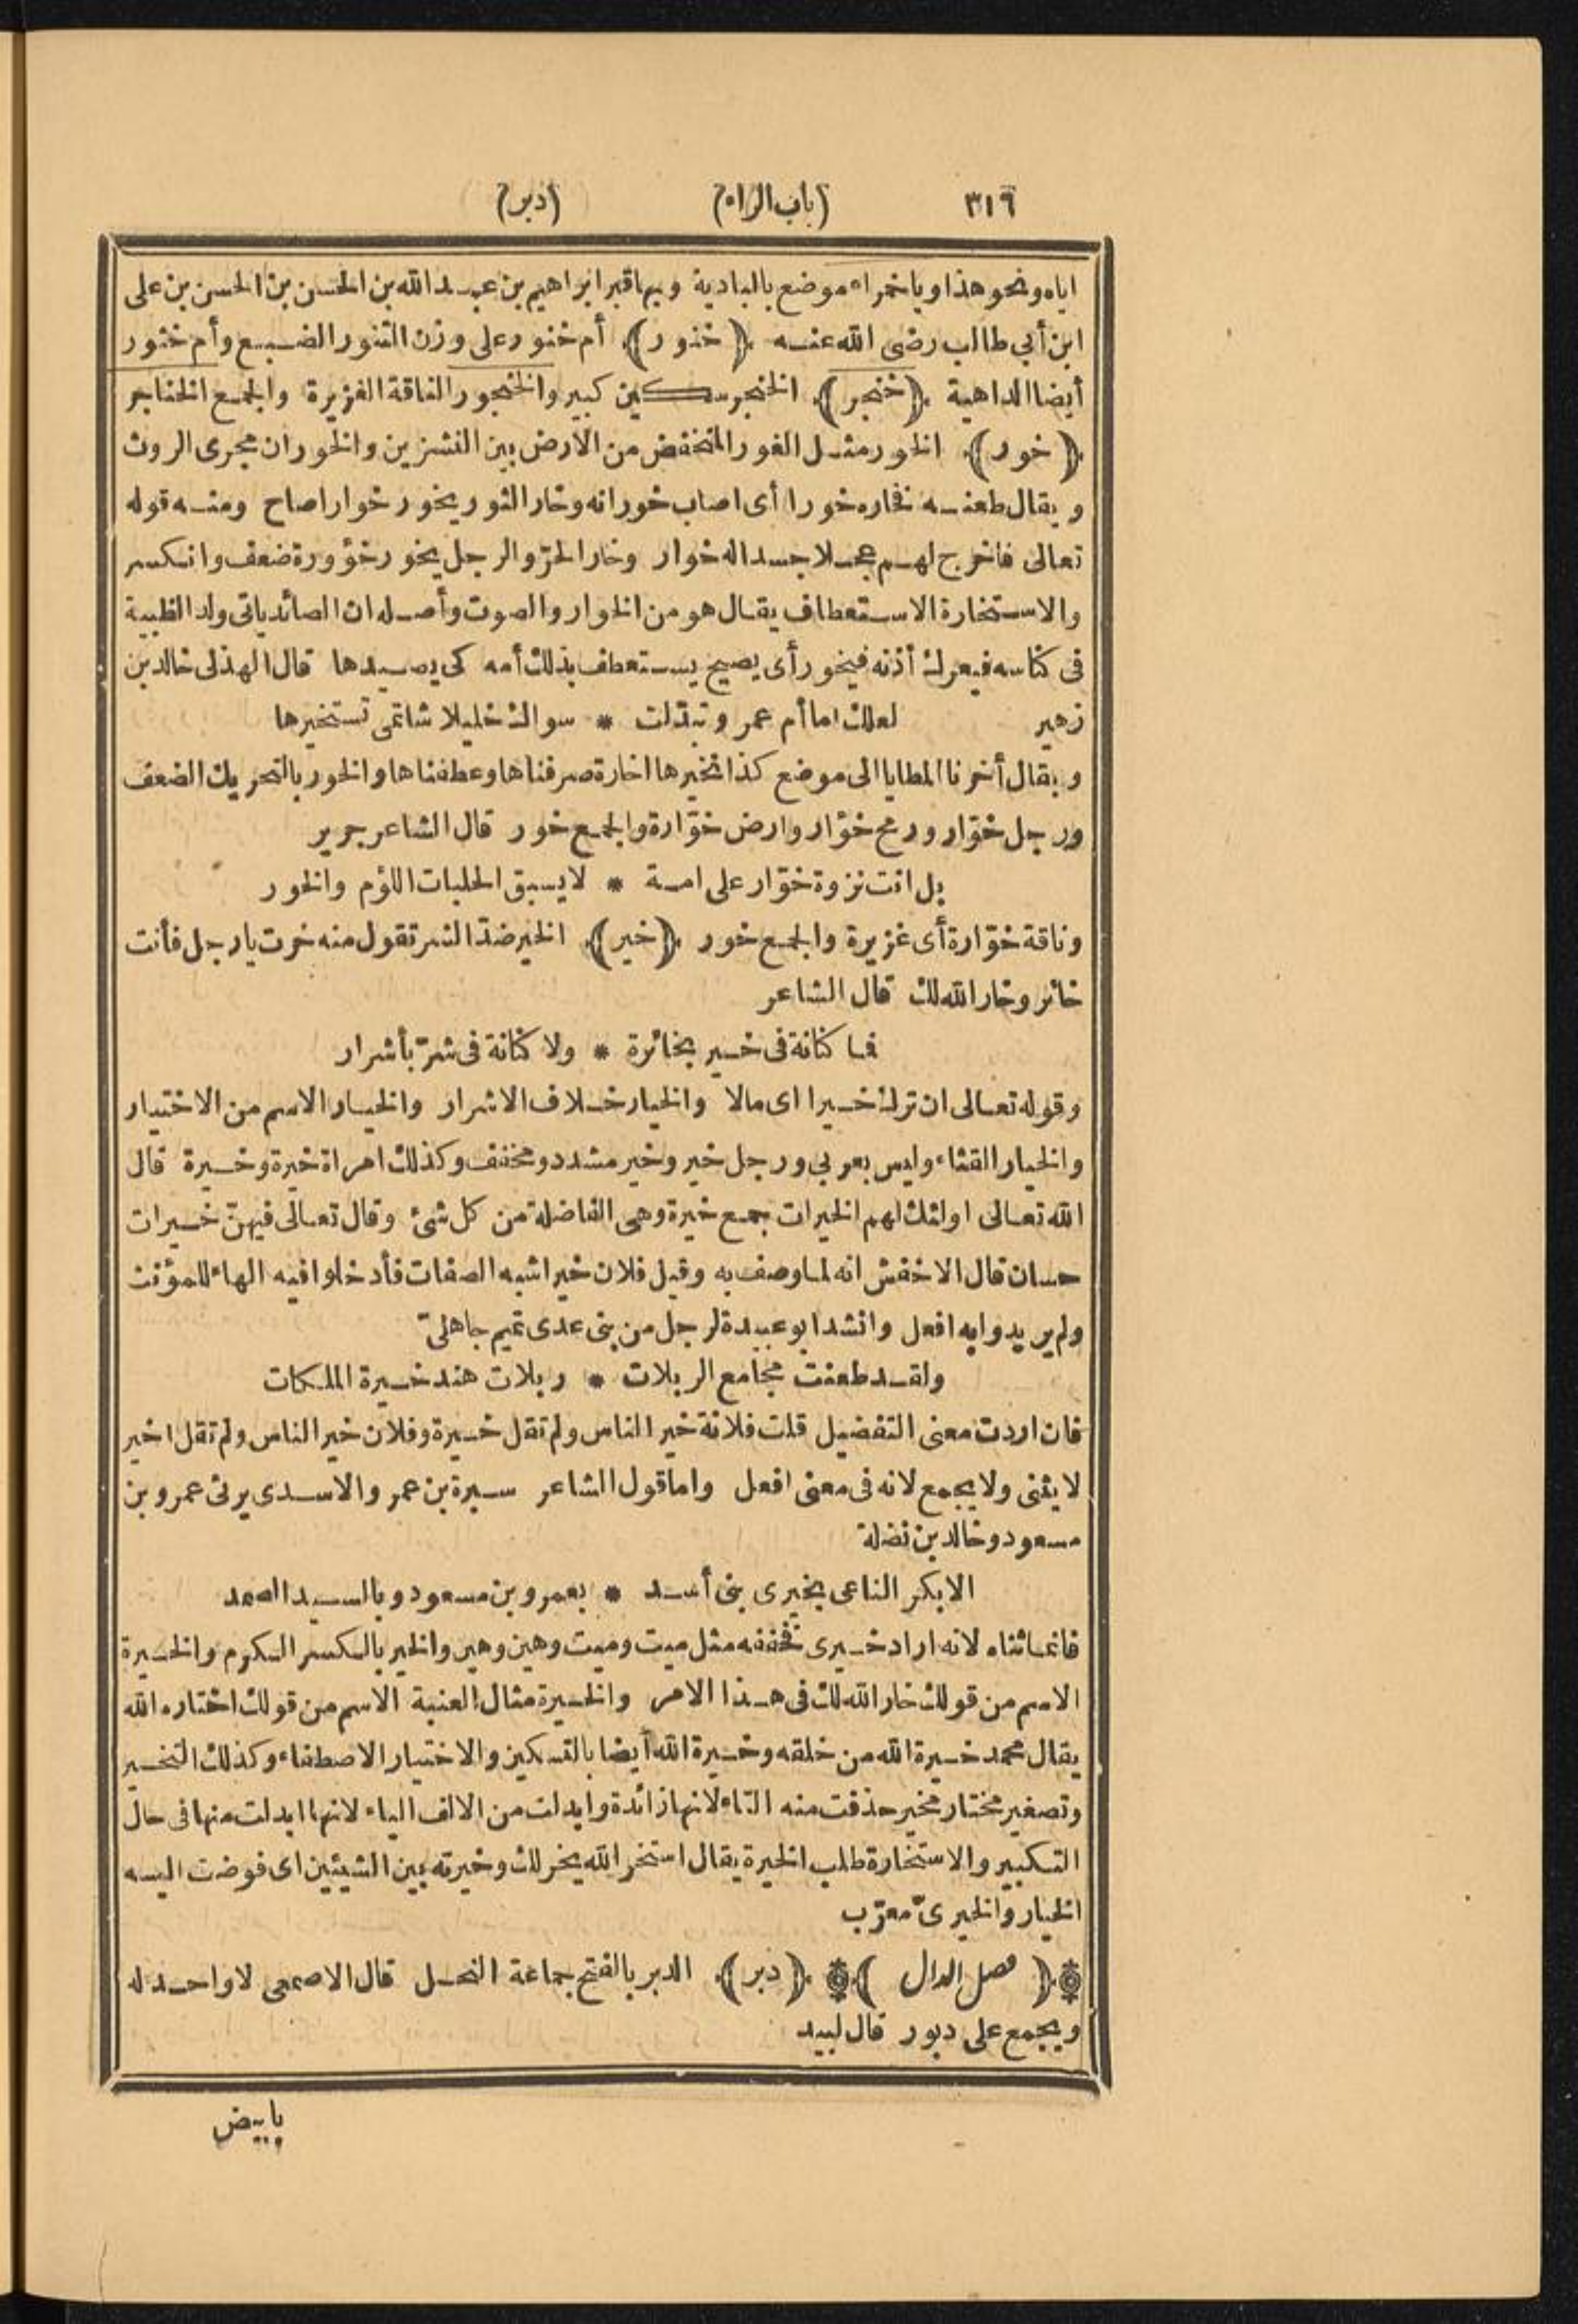 ٣١٦ (باب الراء) (دبر)
اياه ونحو هذا وباخمراء موضع بالبادية وبها قبر ابراهيم بن عبد الله بن الحسن بن الحسن بن على
ابن أبي طالب رضى الله عنه ﴿ خنور ﴾ أم خنور على وزن التنور الضبع وأم خنور
أيضا الداهية ﴿ خنجر ﴾ الخنجر سكين كبير والخنجور الناقة الغزيرة والجمع الخناجر
﴿ خور ﴾ الخور مثل الغور المنخفض من الأرض بين النشزين والخوران مجرى الروث
ويقال طعنه فخاره خورا أى اصاب خورانه وخار الثور يخور خوارا صاح ومنه قوله
تعالى فاخرج لهم عجلا جسدا له خوار وخار الحرّ والرجل يخور خؤورة ضعف وانكسر
والاستخارة الاستعطاف يقال هو من الخوار والصوت وأصله ان الصائد ياتى ولد الظبية
فى كناسه فيعرك أذنه فيخور أى يصيح يستعطف بذلك أمه كى يصيدها قال الهذلى خالد بن
زهير لعلك اما أم عمرو تبدّلت * سواك خليلا شاتمى تستخيرها
ويقال أخرنا المطايا الى موضع كذا نخيرها اخارة صرفناها وعطفناها والخور بالتحريك الضعف
ورجل خوّار ورمح خوّار وارض خوّارة والجمع خور قال الشاعر جرير
بل انت نزوة خوّار على امة * لا يسبق الحلبات اللؤم والخور
وناقة خوّارة أى غزيرة والجمع خور ﴿ خير ﴾ الخير ضدّ الشر تقول منه خرت يا رجل فأنت
خائر وخار الله لك قال الشاعر
فما كنانة فى خير بخائرة * ولا كنانة فى شرّ بأشرار
وقوله تعالى ان ترك خيرا اى مالا والخيار خلاف الاشرار والخيار الاسم من الاختيار
والخيار القثاء وليس بعربي ورجل خير وخير مشدد ومخفف وكذلك امراة خيرة وخيرة قال
الله تعالى اولئك لهم الخيرات جمع خيرة وهى الفاضلة من كل شئ وقال تعالى فيهنّ خيرات
حسان قال الاخفش انه لما وصف به وقيل فلان خير اشبه الصفات فأدخلوا فيه الهاء للمؤنث
ولم يريدوا به افعل وانشد ابو عبيدة لرجل من بنى عدى تميم جاهلىّ
ولقد طعنت مجامع الربلات * ربلات هند خيرة الملكات
فان اردت معنى التفضيل قلت فلانة خير الناس ولم تقل خيرة وفلان خير الناس ولم تقل اخير
لا يثنى ولا يجمع لانه فى معنى افعل واما قول الشاعر سبرة بن عمر والاسدى يرثى عمرو بن
مسعود وخالد بن نضلة
الا بكر الناعى بخيرى بنى أسد * بعمرو بن مسعود وبالسيد الصمد
فانما ثناه لانه اراد خيرى فخففه مثل ميت وميت وهين وهين والخير بالكسر الكرم والخيرة
الاسم من قولك خار الله لك فى هذا الامر والخيرة مثال العنبة الاسم من قولك اختاره الله
يقال محمد خيرة الله من خلقه وخيرة الله أيضا بالتسكين والاختيار الاصطفاء وكذلك التخير
وتصغير مختار مخير حذفت منه التاء لانها زائدة وابدلت من الالف الياء لانها ابدلت منها فى حال
التكبير والاستخارة طلب الخيرة يقال استخر الله يخر لك وخيرته بين الشيئين اى فوضت اليه
الخيار والخيرىّ معرّب
﴿ فصل الدال ﴾ ﴿ دبر ﴾ الدبر بالفتح جماعة النحل قال الاصمعى لا واحد له
ويجمع على دبور قال لبيد
بابيض